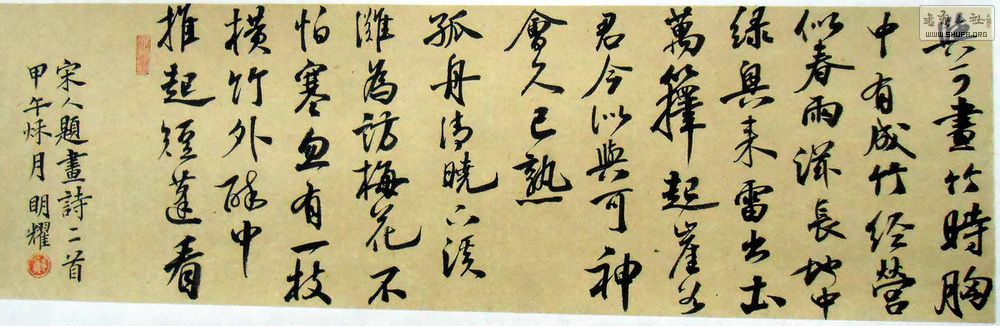 與可畫竹時胸
中有成竹經營
似春雨滋長地中
綠興來雷出土
萬籜起崖谷
君今似與可神
會久已熟
孤舟清曉下溪
灘為訪梅花不
怕寒忽有一枝
橫竹外酔中
推起短蓬看
宋人題畫詩二首
甲午秌月 明耀
書法公社
WWW.SHUFA.ORG